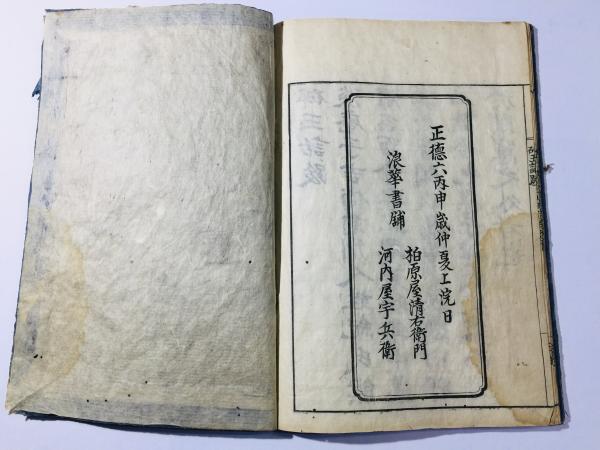 正德六丙申歲仲夏上浣日
浪華書舖
柏原屋清右衛門
河内屋宇兵衛